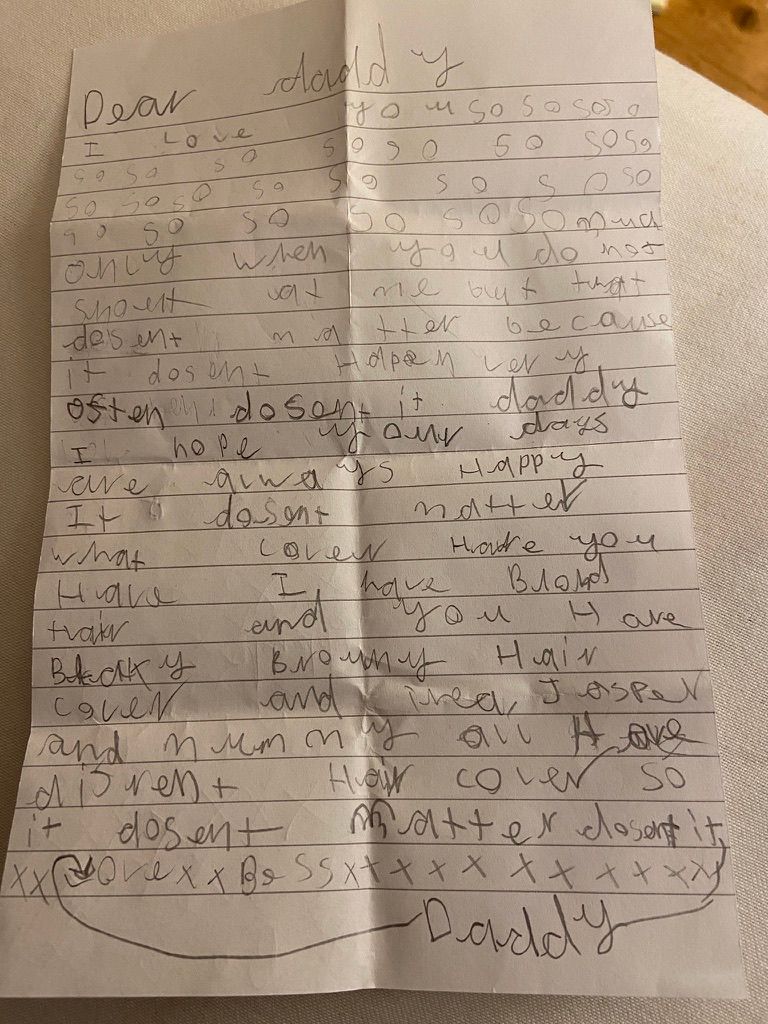 Dear daddy
I love you so so soso
so so so so so so soso
so so so so so so so so
so so so so so so so mud
only when you do not
shout at me but that
desent matter because
it dosent Hapen very
often dosent it daddy
I hope your days
are always Happy
It dosent matter
what cover Have you
Have I have Blond
Hair and you Have
Blacky Browny Hair
cover and Jasper
and mummy all Have
difrent Hair cover so
it dosent Matter dosent it
xx Love x x Bess x x x x x x x x x x x
Daddy